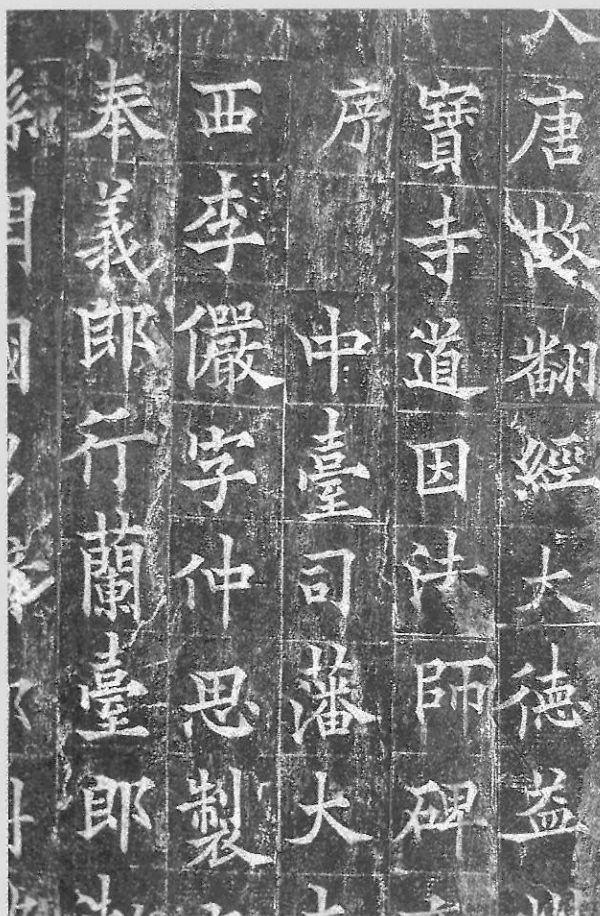 唐故翻經大德益
寶寺道因法師碑
序 中臺司藩大
西李儼字仲思製
奉義郎行蘭臺郎